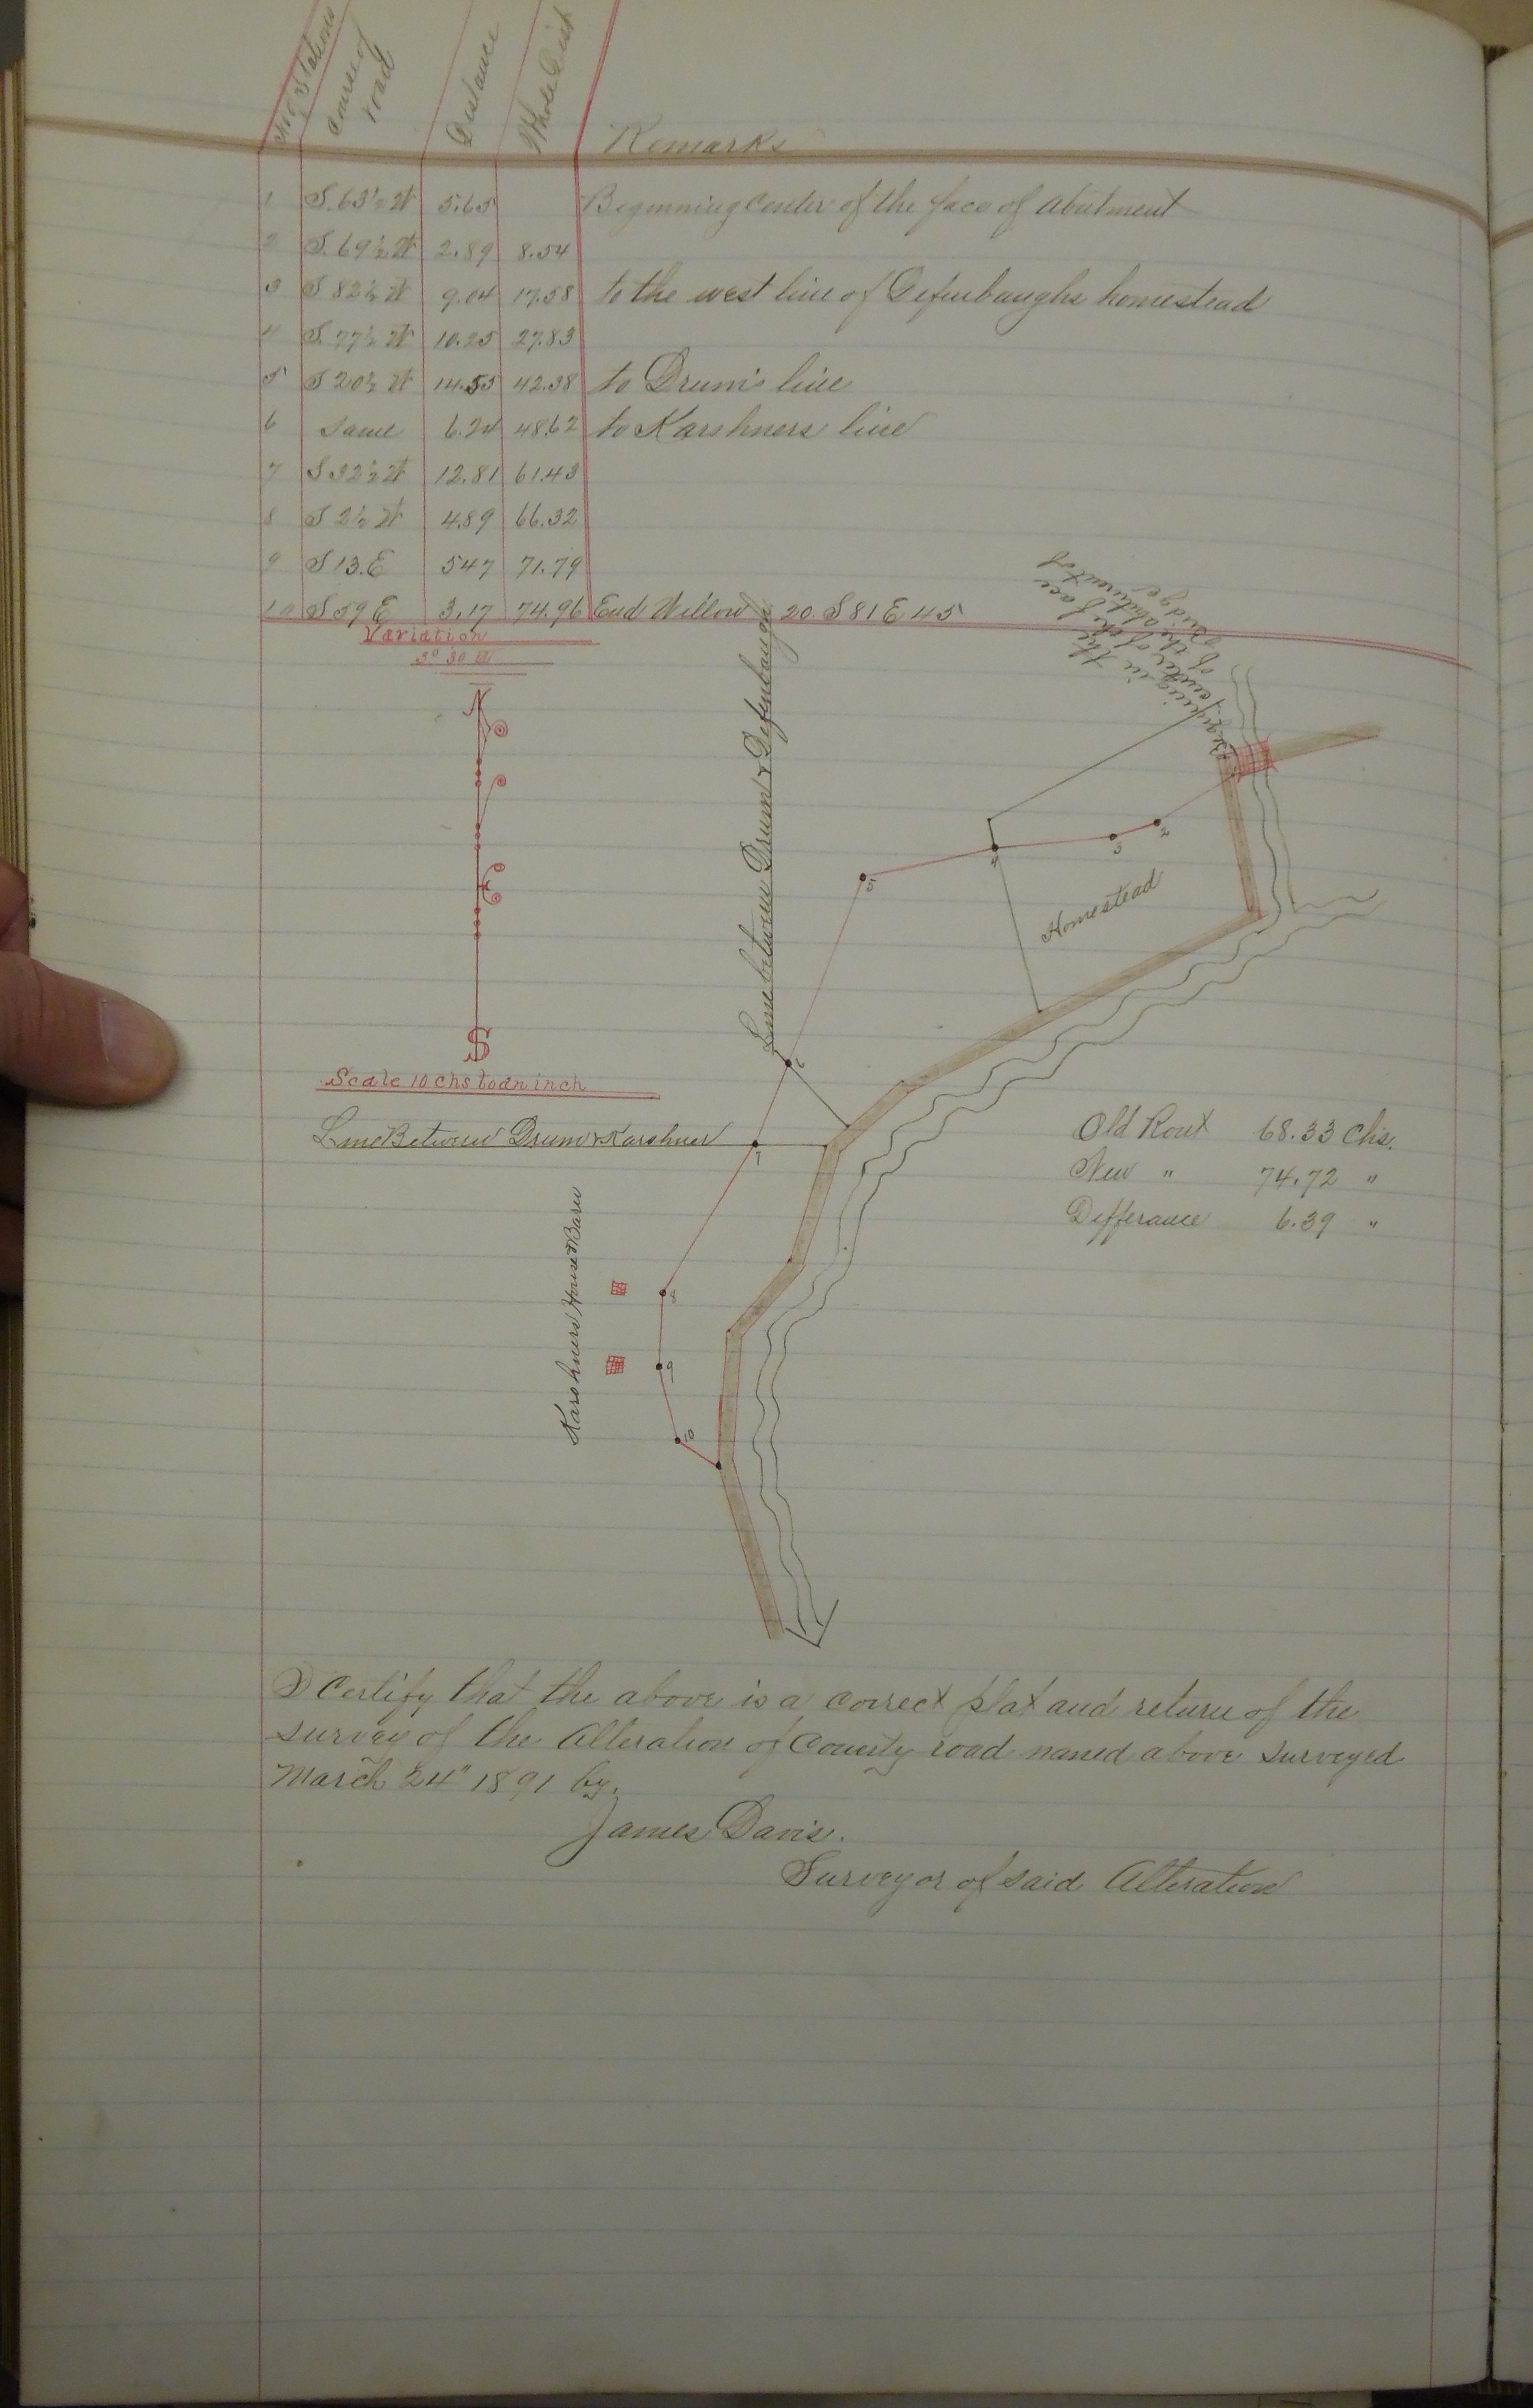 No. Stations Course of road Distance Whole Dist Remarks
1 S. 63½ W 5.65 Beginning Center of the face of abutment
2 S. 69½ W 2.89 8.54
3 S 82½ W 9.04 17.58 to the west line of Defenbaughs homestead
4 S. 77½ W 10.25 27.83
5 S 20½ W 14.55 42.38 to Drum's line
6 Same 6.24 48.62 to Karshners line
7 S 32½ W 12.81 61.43
8 S 2½ W 4.89 66.32
9 S 13. E 547 71.79
10 S 59 E 3.17 74.96 End Willow 20. S 81 E 45
Variation
3° 30 W
N
S
Scale 10 chs to an inch
Beginning in the
center of the face
of the abutment of
bridge
Line between Drum & Defenbaugh
2
3
4
5
Homestead
6
Line Between Drum & Karshner
7
Old Rout 68.33 Chs.
New " 74.72 "
Differance 6.39 "
Karshners House & Barn
8
9
10
I Certify that the above is a correct plat and return of the
survey of the Alteration of County road named above surveyed
March 24" 1891 by.
James Davis.
Surveyor of said Alteration